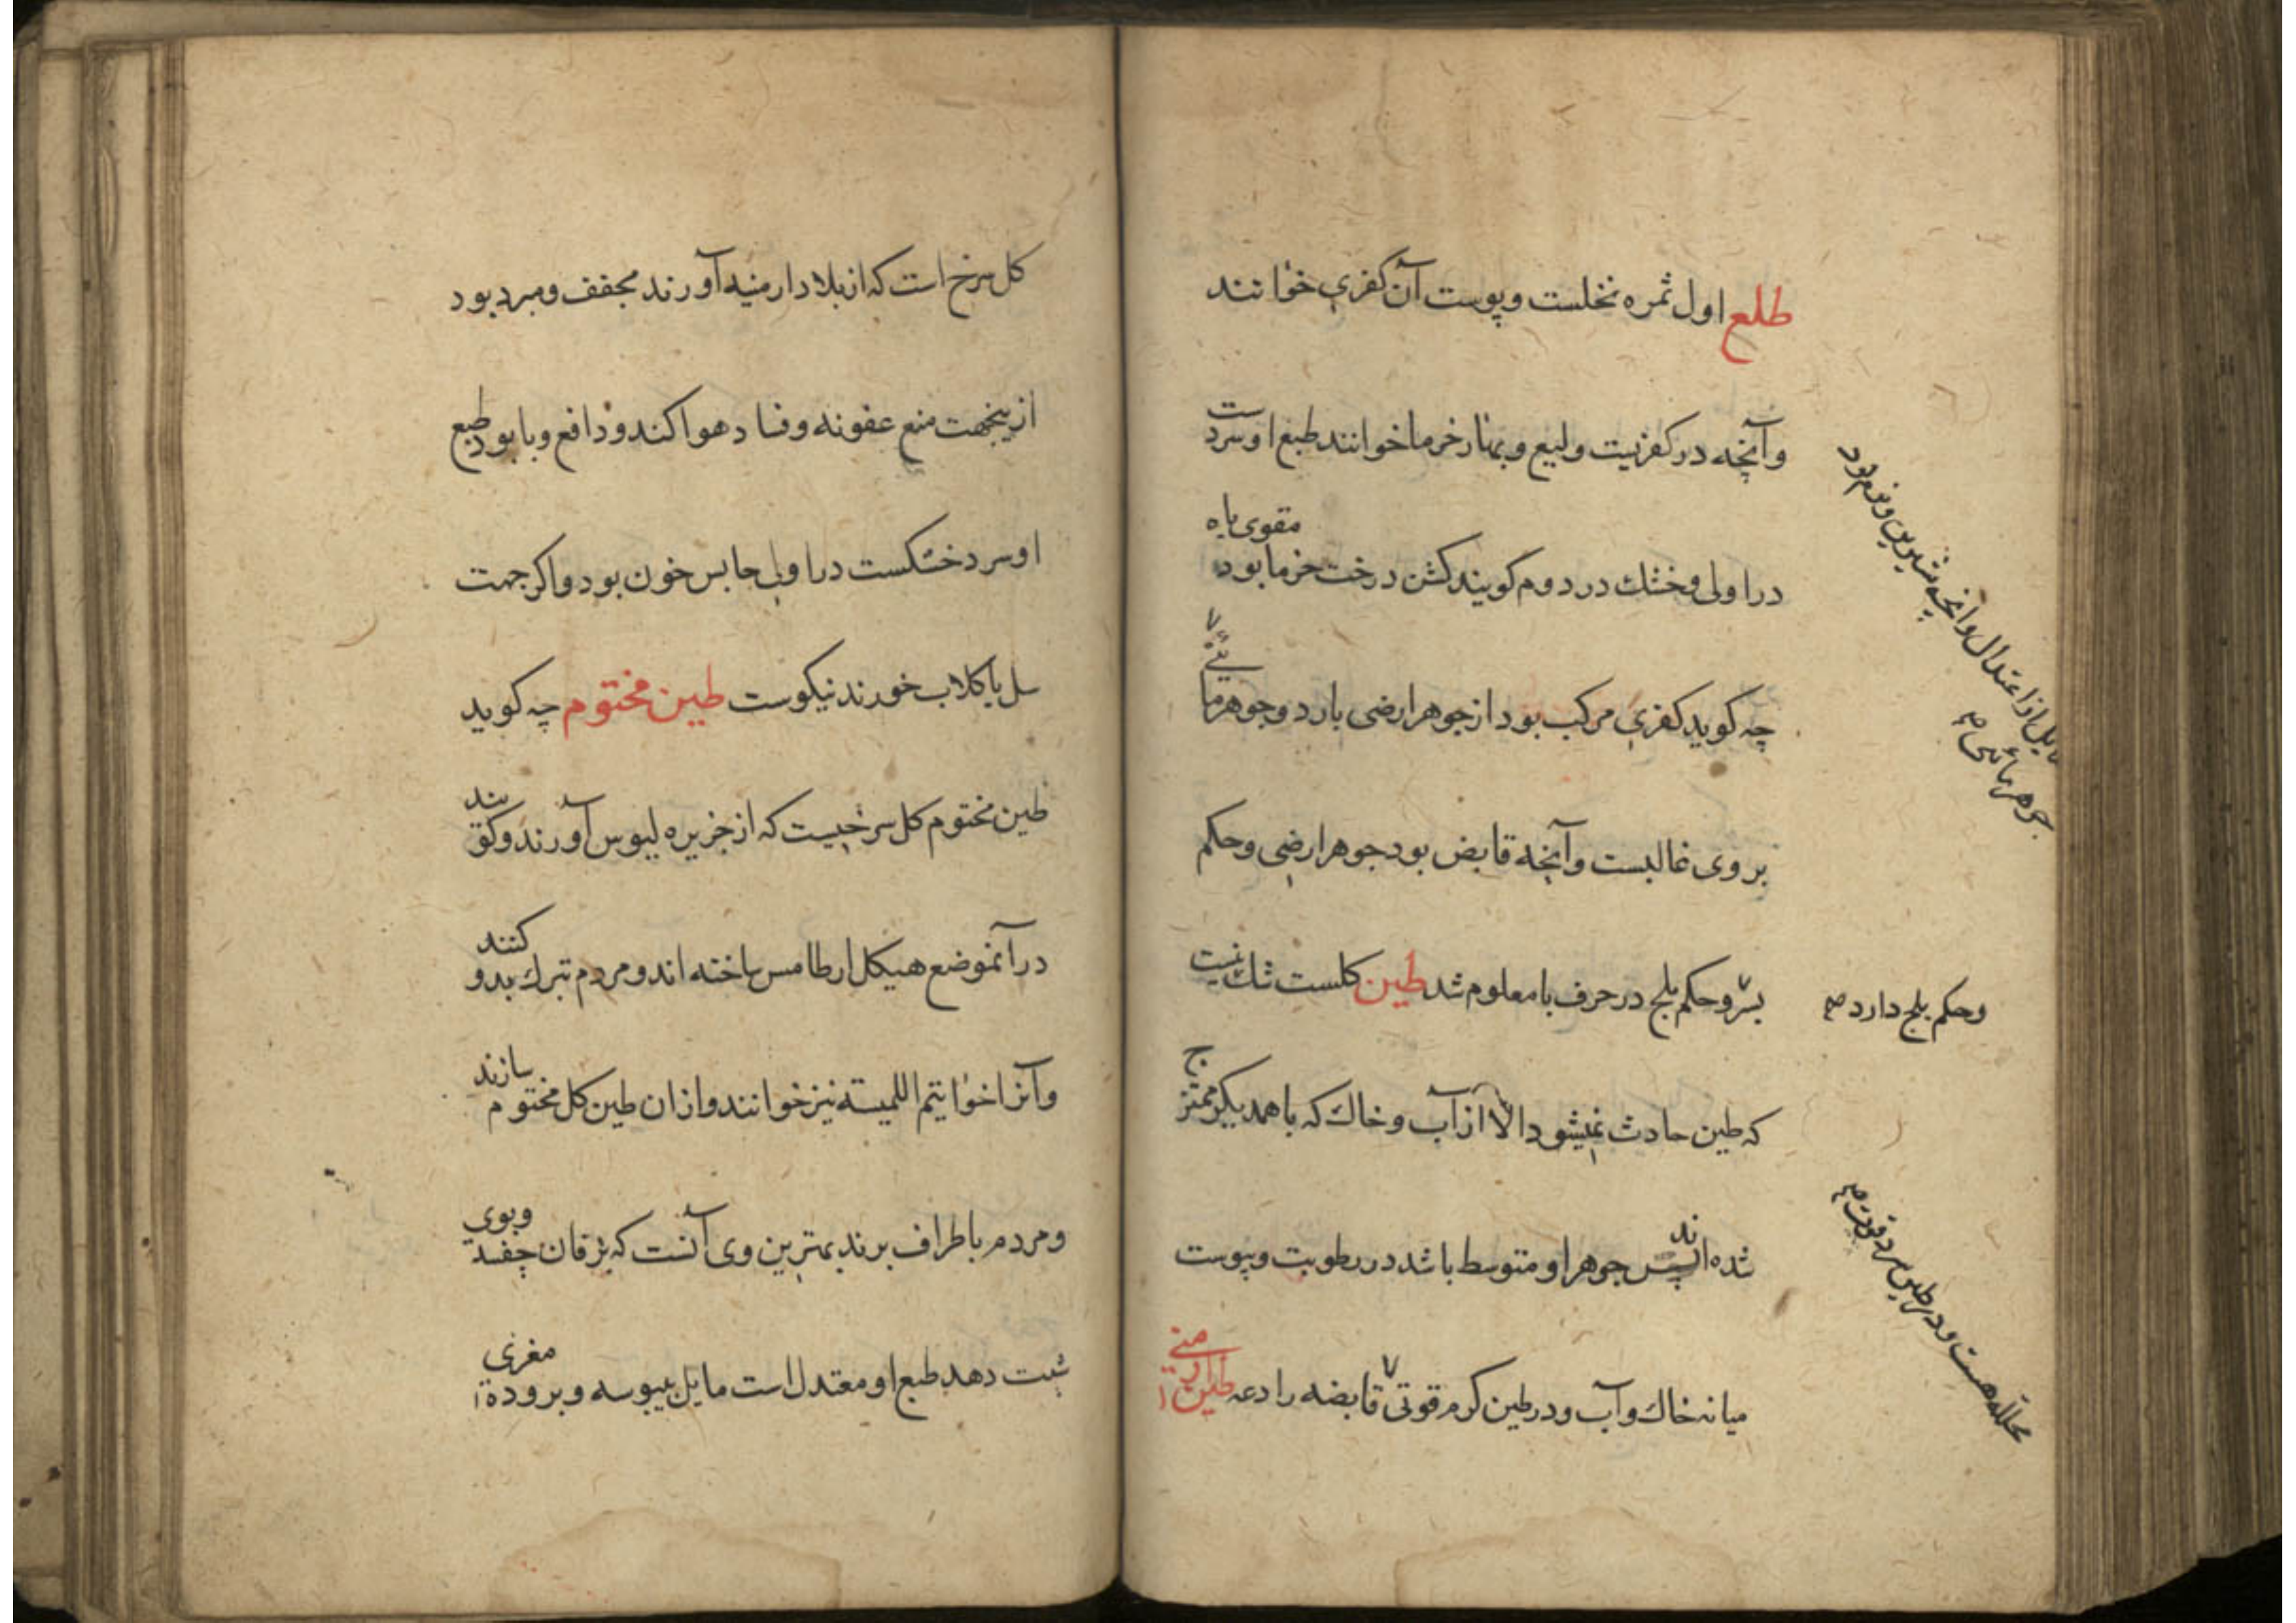 طلع اول ثمره نخلست و پوست آن کفری خوانند
وآنچه در کفریست ولیع و بهار خرما خوانند طبع او سردست
در اولی و خشک در دوم کویند کشن درخت خرما بود مقوی باه
چه کوید کفری مرکب بود از جوهر ارضی بارد و جوهر مائی
بروی غالبست وآنچه قابض بود جوهر ارضی وحکم
بسر وحکم بلح در حرف با معلوم شد طین کلست شک نیست
که طین حادث نمیشود الا از آب و خاک که باهمدیکر ممتزج
شده اند پس جوهر او متوسط باشد در رطوبت ویبوست
میانه خاک وآب ودر طین کرم قوتی قابضه رادعه طین ارمنی
مایل باز اعتدال وآنچه شیرین وخوش بود
جوهر مائی
وحکم بلح دارد صح
محلله هست ودر طین سرد قوت
کل سرخ است که از بلاد ارمنیه آورند مجفف ومبرد بود
ازینجهت منع عفونه وفساد هوا کند ودافع وبا بود طبع
او سرد خشکست در اولی حابس خون بود واکر جهت
سل با کلاب خورند نیکوست طین مختوم چه کوید
طین مختوم کل سرخیست که از جزیره لیوس آورند وکویند
در آنموضع هیکل ارطامس ساخته اند ومردم تبرک بدو کنند
وآنرا خواتیم اللمیسه نیز خوانند وازان طین کل مختوم سازند
ومردم باطراف برند بهترین وی آنست که بزفان چفسد وبوی
شبت دهد طبع او معتدل است مایل بیبوسه وبروده مغری